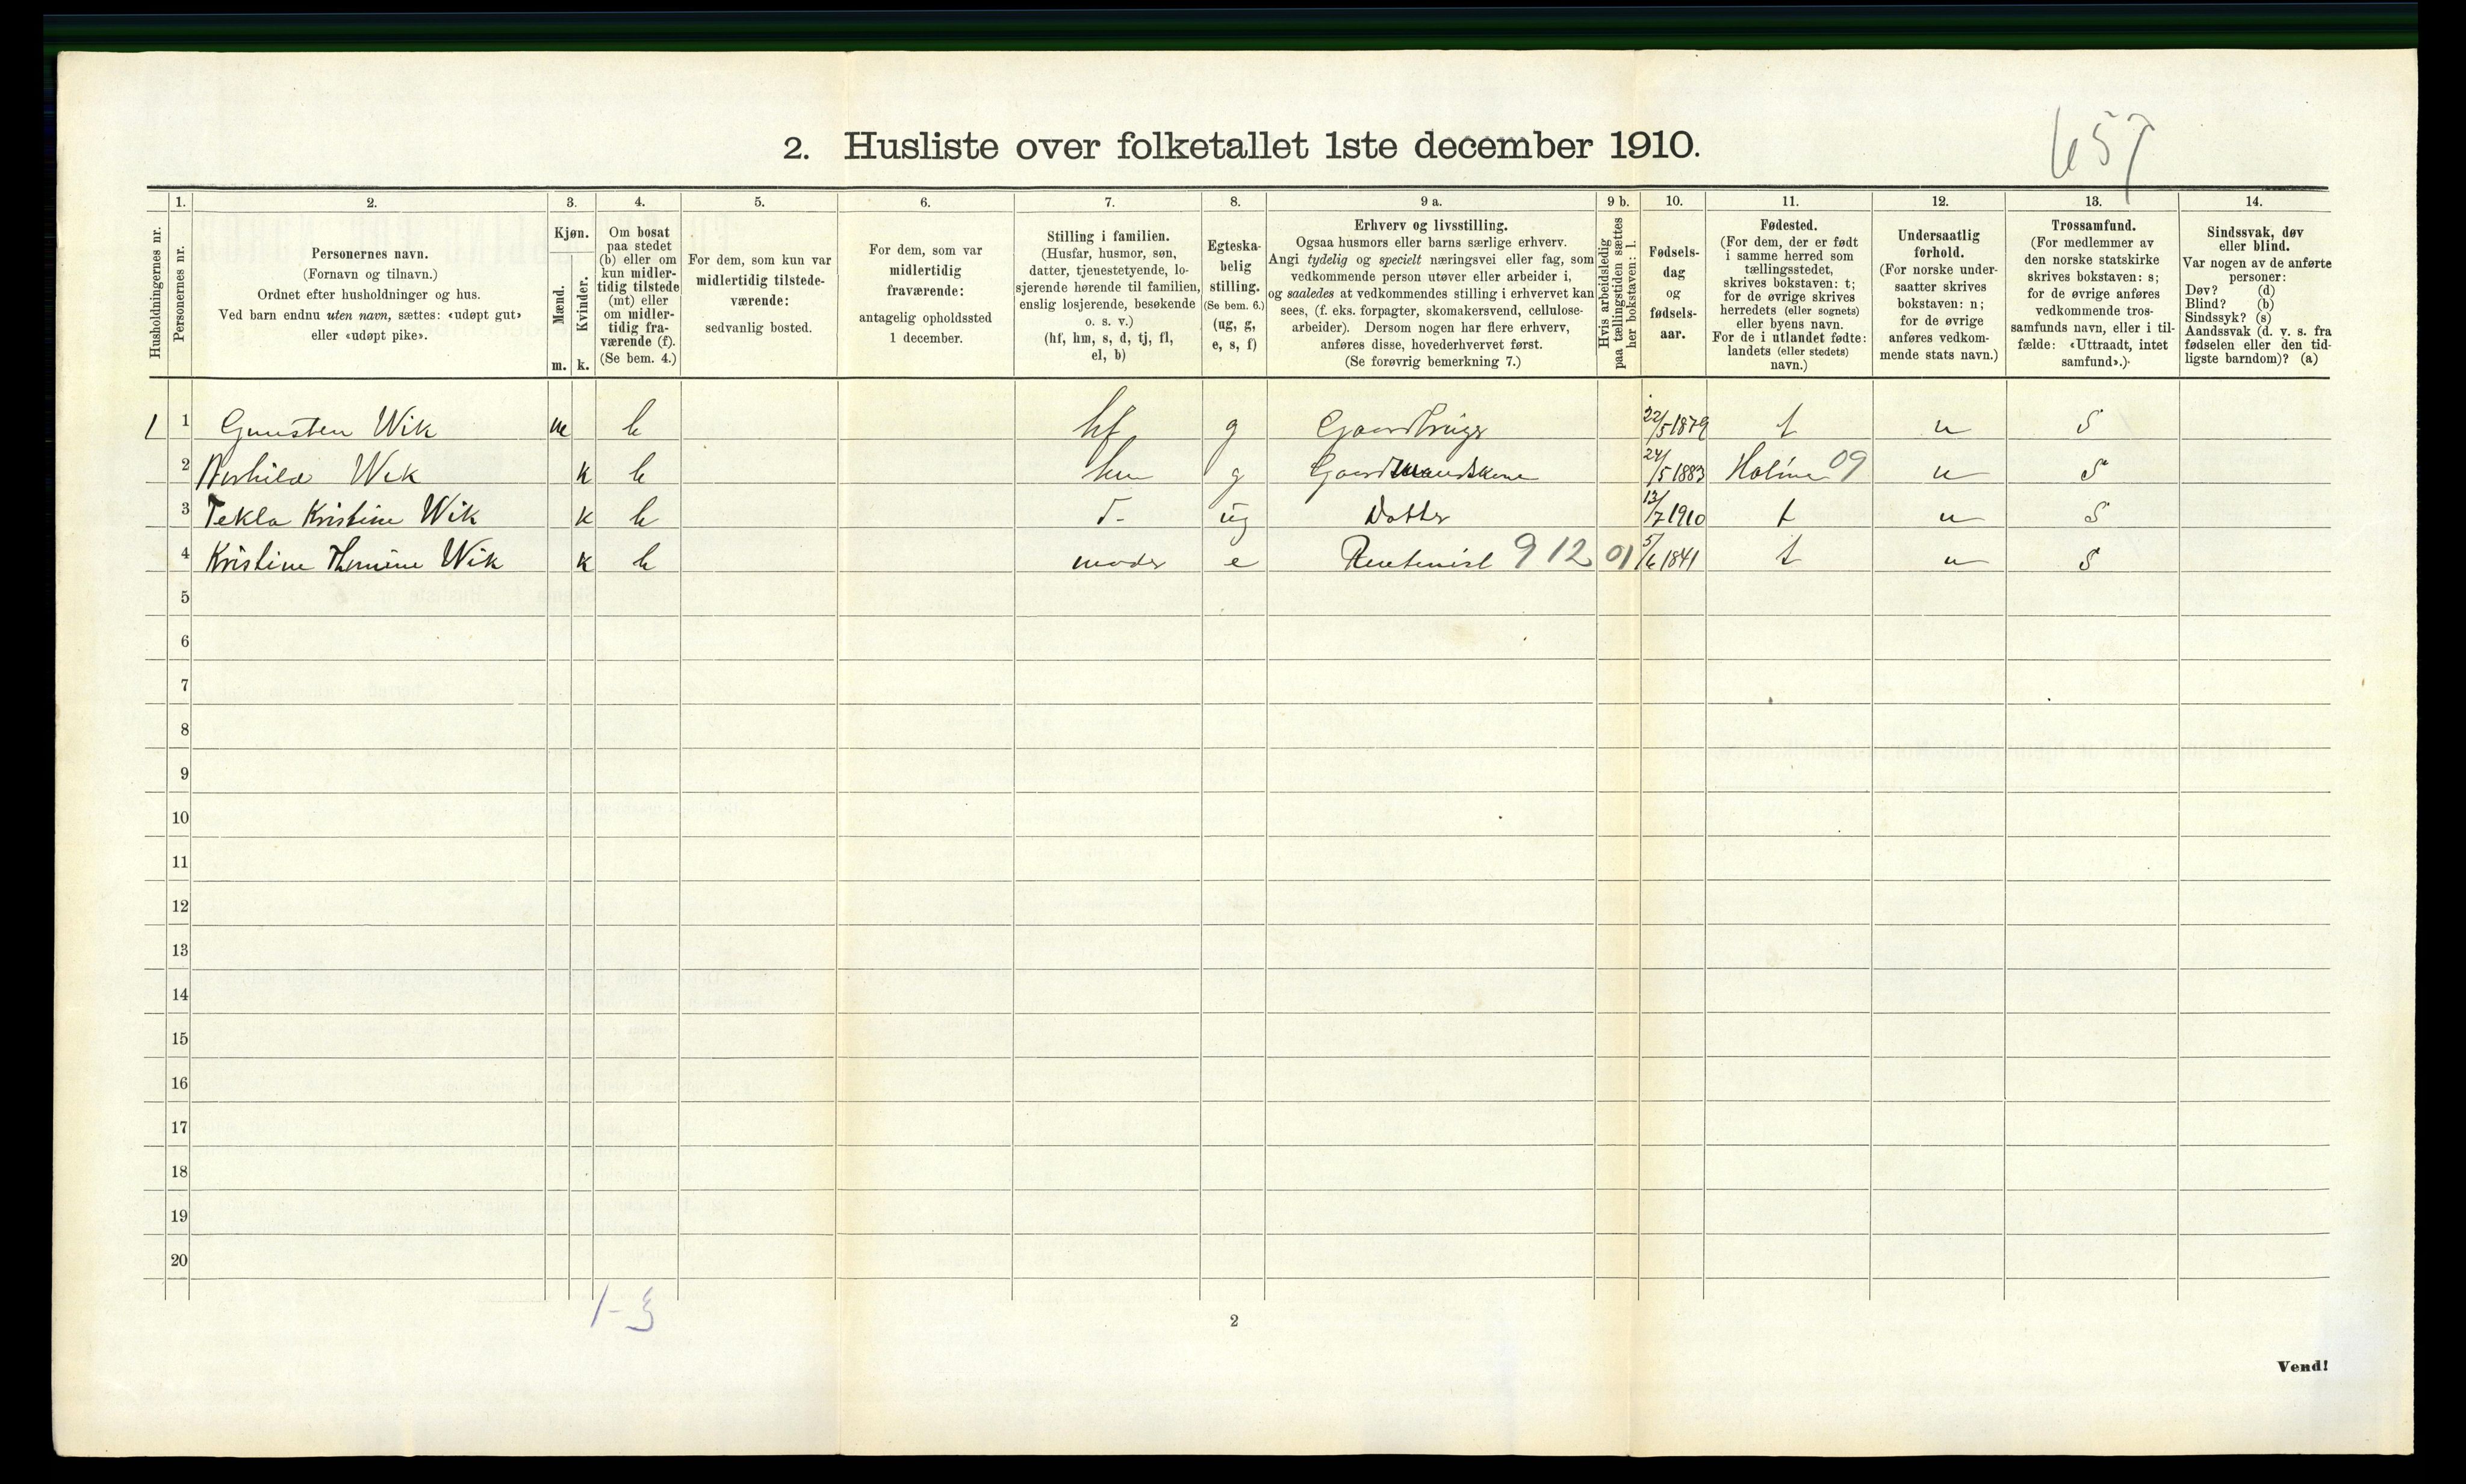 2. Husliste over folketallet 1ste december 1910.
657
1. 2. 3. 4. 5. 6. 7. 8. 9 a. 9 b. 10. 11. 12. 13. 14.
Husholdningernes nr.
Personernes nr.
Personernes navn.
(Fornavn og tilnavn.)
Ordnet efter husholdninger og hus.
Ved barn endnu uten navn, sættes: «udøpt gut»
eller «udøpt pike».
Kjøn.
Mænd.
Kvinder.
m. k.
Om bosat
paa stedet
(b) eller om
kun midler-
tidig tilstede
(mt) eller
om midler-
tidig fra-
værende (f).
(Se bem. 4.)
For dem, som kun var
midlertidig tilstede-
værende:
sedvanlig bosted.
For dem, som var
midlertidig
fraværende:
antagelig opholdssted
1 december.
Stilling i familien.
(Husfar, husmor, søn,
datter, tjenestetyende, lo-
sjerende hørende til familien,
enslig losjerende, besøkende
o. s. v.)
(hf, hm, s, d, tj, fl,
el, b)
Egteska-
belig
stilling.
(Se bem. 6.)
(ug, g,
e, s, f)
Erhverv og livsstilling.
Ogsaa husmors eller barns særlige erhverv.
Angi tydelig og specielt næringsvei eller fag, som
vedkommende person utøver eller arbeider i,
og saaledes at vedkommendes stilling i erhvervet kan
sees, (f. eks. forpagter, skomakersvend, cellulose-
arbeider). Dersom nogen har flere erhverv,
anføres disse, hovederhvervet først.
(Se forøvrig bemerkning 7.)
Hvis arbeidsledig
paa tællingstiden sættes
her bokstaven: l.
Fødsels-
dag
og
fødsels-
aar.
Fødested.
(For dem, der er født
i samme herred som
tællingsstedet,
skrives bokstaven: t;
for de øvrige skrives
herredets (eller sognets)
eller byens navn.
For de i utlandet fødte:
landets (eller stedets)
navn.)
Undersaatlig
forhold.
(For norske under-
saatter skrives
bokstaven: n;
for de øvrige
anføres vedkom-
mende stats navn.)
Trossamfund.
(For medlemmer av
den norske statskirke
skrives bokstaven: s;
for de øvrige anføres
vedkommende tros-
samfunds navn, eller i til-
fælde: «Uttraadt, intet
samfund».)
Sindssvak, døv
eller blind.
Var nogen av de anførte
personer:
Døv? (d)
Blind? (b)
Sindssyk? (s)
Aandssvak (d. v. s. fra
fødselen eller den tid-
ligste barndom)? (a)
1 1 Gunsten Wik m b hf g Gaardbruger 22/5 1879 t n S
2 Wik k b hm g Gaardmandskone 24/5 1883 Holme 09 n S
3 Tekla Kristine Wik k b d- ug Datter 13/7 1910 t n S
4 Kristine Wik k b moder e Rentenist 912 01 5/6 1841 t n S
5
6
7
8
9
10
11
12
13
14
15
16
17
18
19
20
1-3
2
Vend!